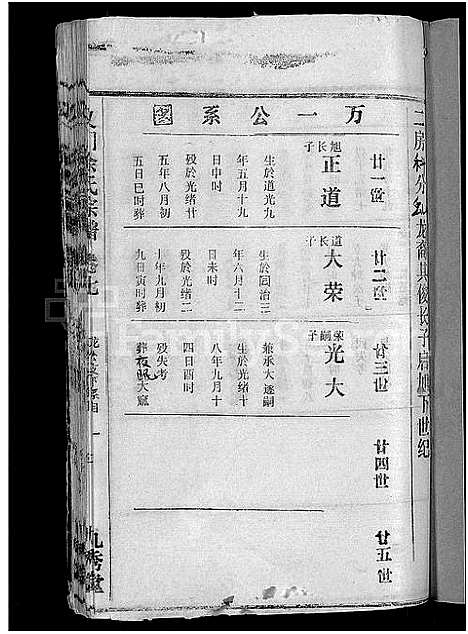 万一公系图
二房 公 族裔其俊长子启旭下世纪
廿一世
旭长子
正道
生於道光九
年五月十九
日中时
殁於光绪廿
五年八月初
五日巳时葬
廿二世
道长子
大荣
生於同治三
年六月十二
日未时
殁於光绪二
十年九月初
九日寅时葬
廿三世
荣嗣子
光大
兼承大逐嗣
生於光绪十
八年九月十
四日酉时
殁失考
葬 大窠
廿四世
廿五世
徐氏宗谱 卷七
九秀堂